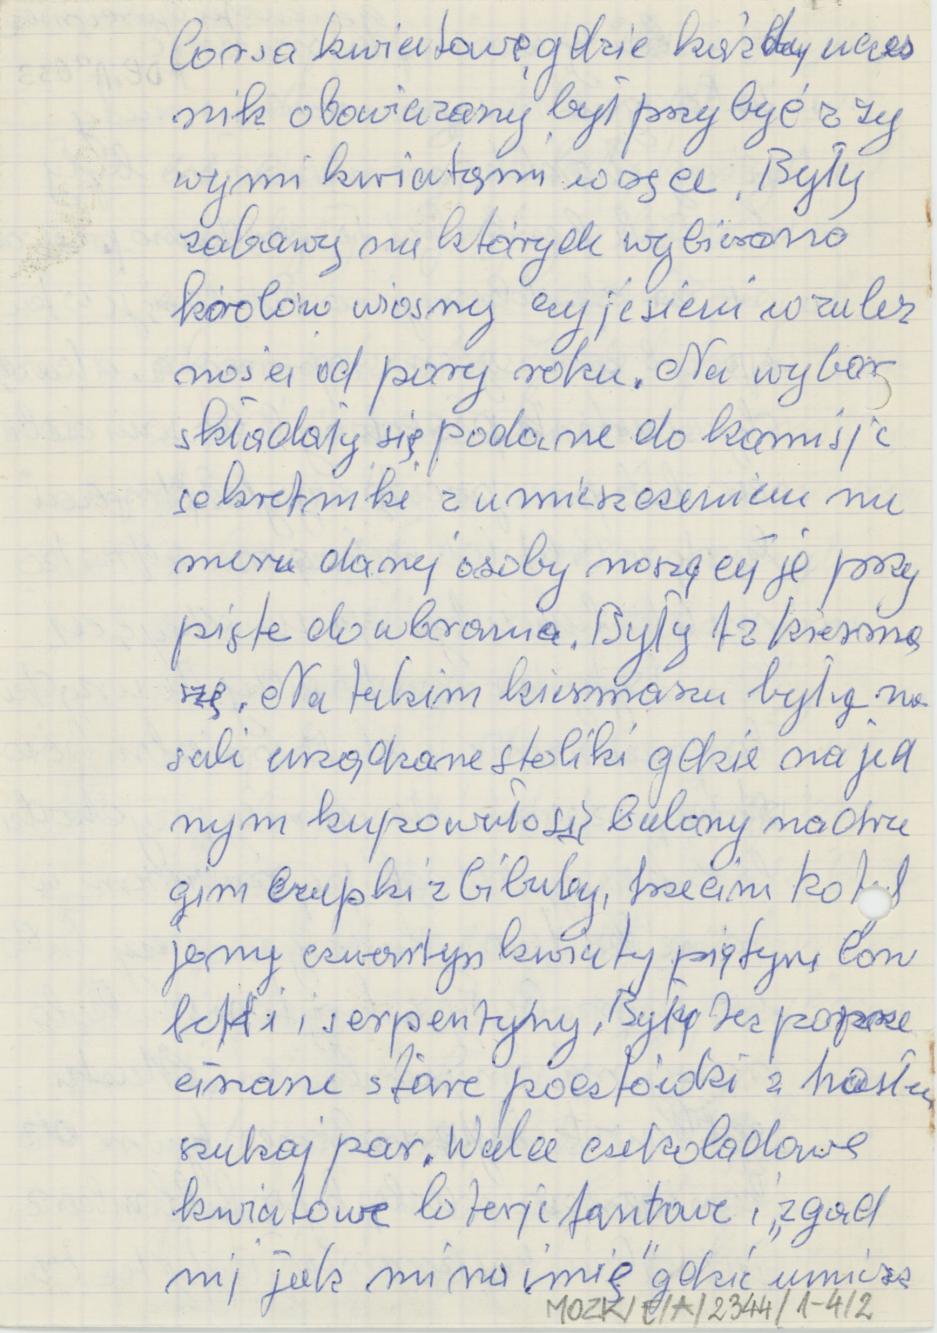 Corsa kwiatowe, gdzie każdy uczes
nik obowiązany był przybyć z ży
wymi kwiatami w ręce. Były
zabawy na których wybierano
królów wiosny czy jesieni w zależ
ności od pory roku. Na wybór
składały się podane do komisji
sekretniki z umieszczeniem nu
meru danej osoby noszącej je przy
pięte do ubrania. Były też kierma
szę. Na takim kiermaszu były na
sali urządzane stoliki gdzie na jed
nym kupowało się balony na dru
gim czapki z bibuły, trzecim kotyl
jony czwartym kwiaty piątym con
fetti i serpentyny. Były też poprze
cinane stare pocztówki z hasłem
szukaj pary. Walce czekoladowe
kwiatowe loterje fantowe i „zgad
nij jak mi na imię" gdzie umiesz
MOZK/E/A/2344/1-4/2